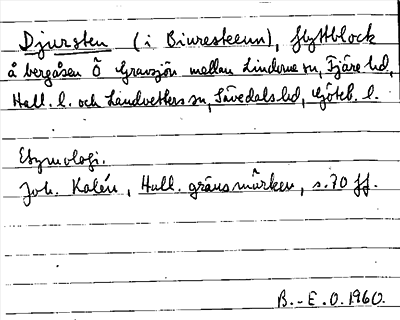 Djursten (i Biuresteenn), flyttblock
å bergåsen Ö Gravsjön mellan Lindome sn, Fjäre hd,
Hall. l. och Landvetters sn, Sävedals hd, Göteb. l.
Etymologi.
Joh. Kalén, Hall. gränsmärken, s. 70 ff.
B.-E.O. 1960.